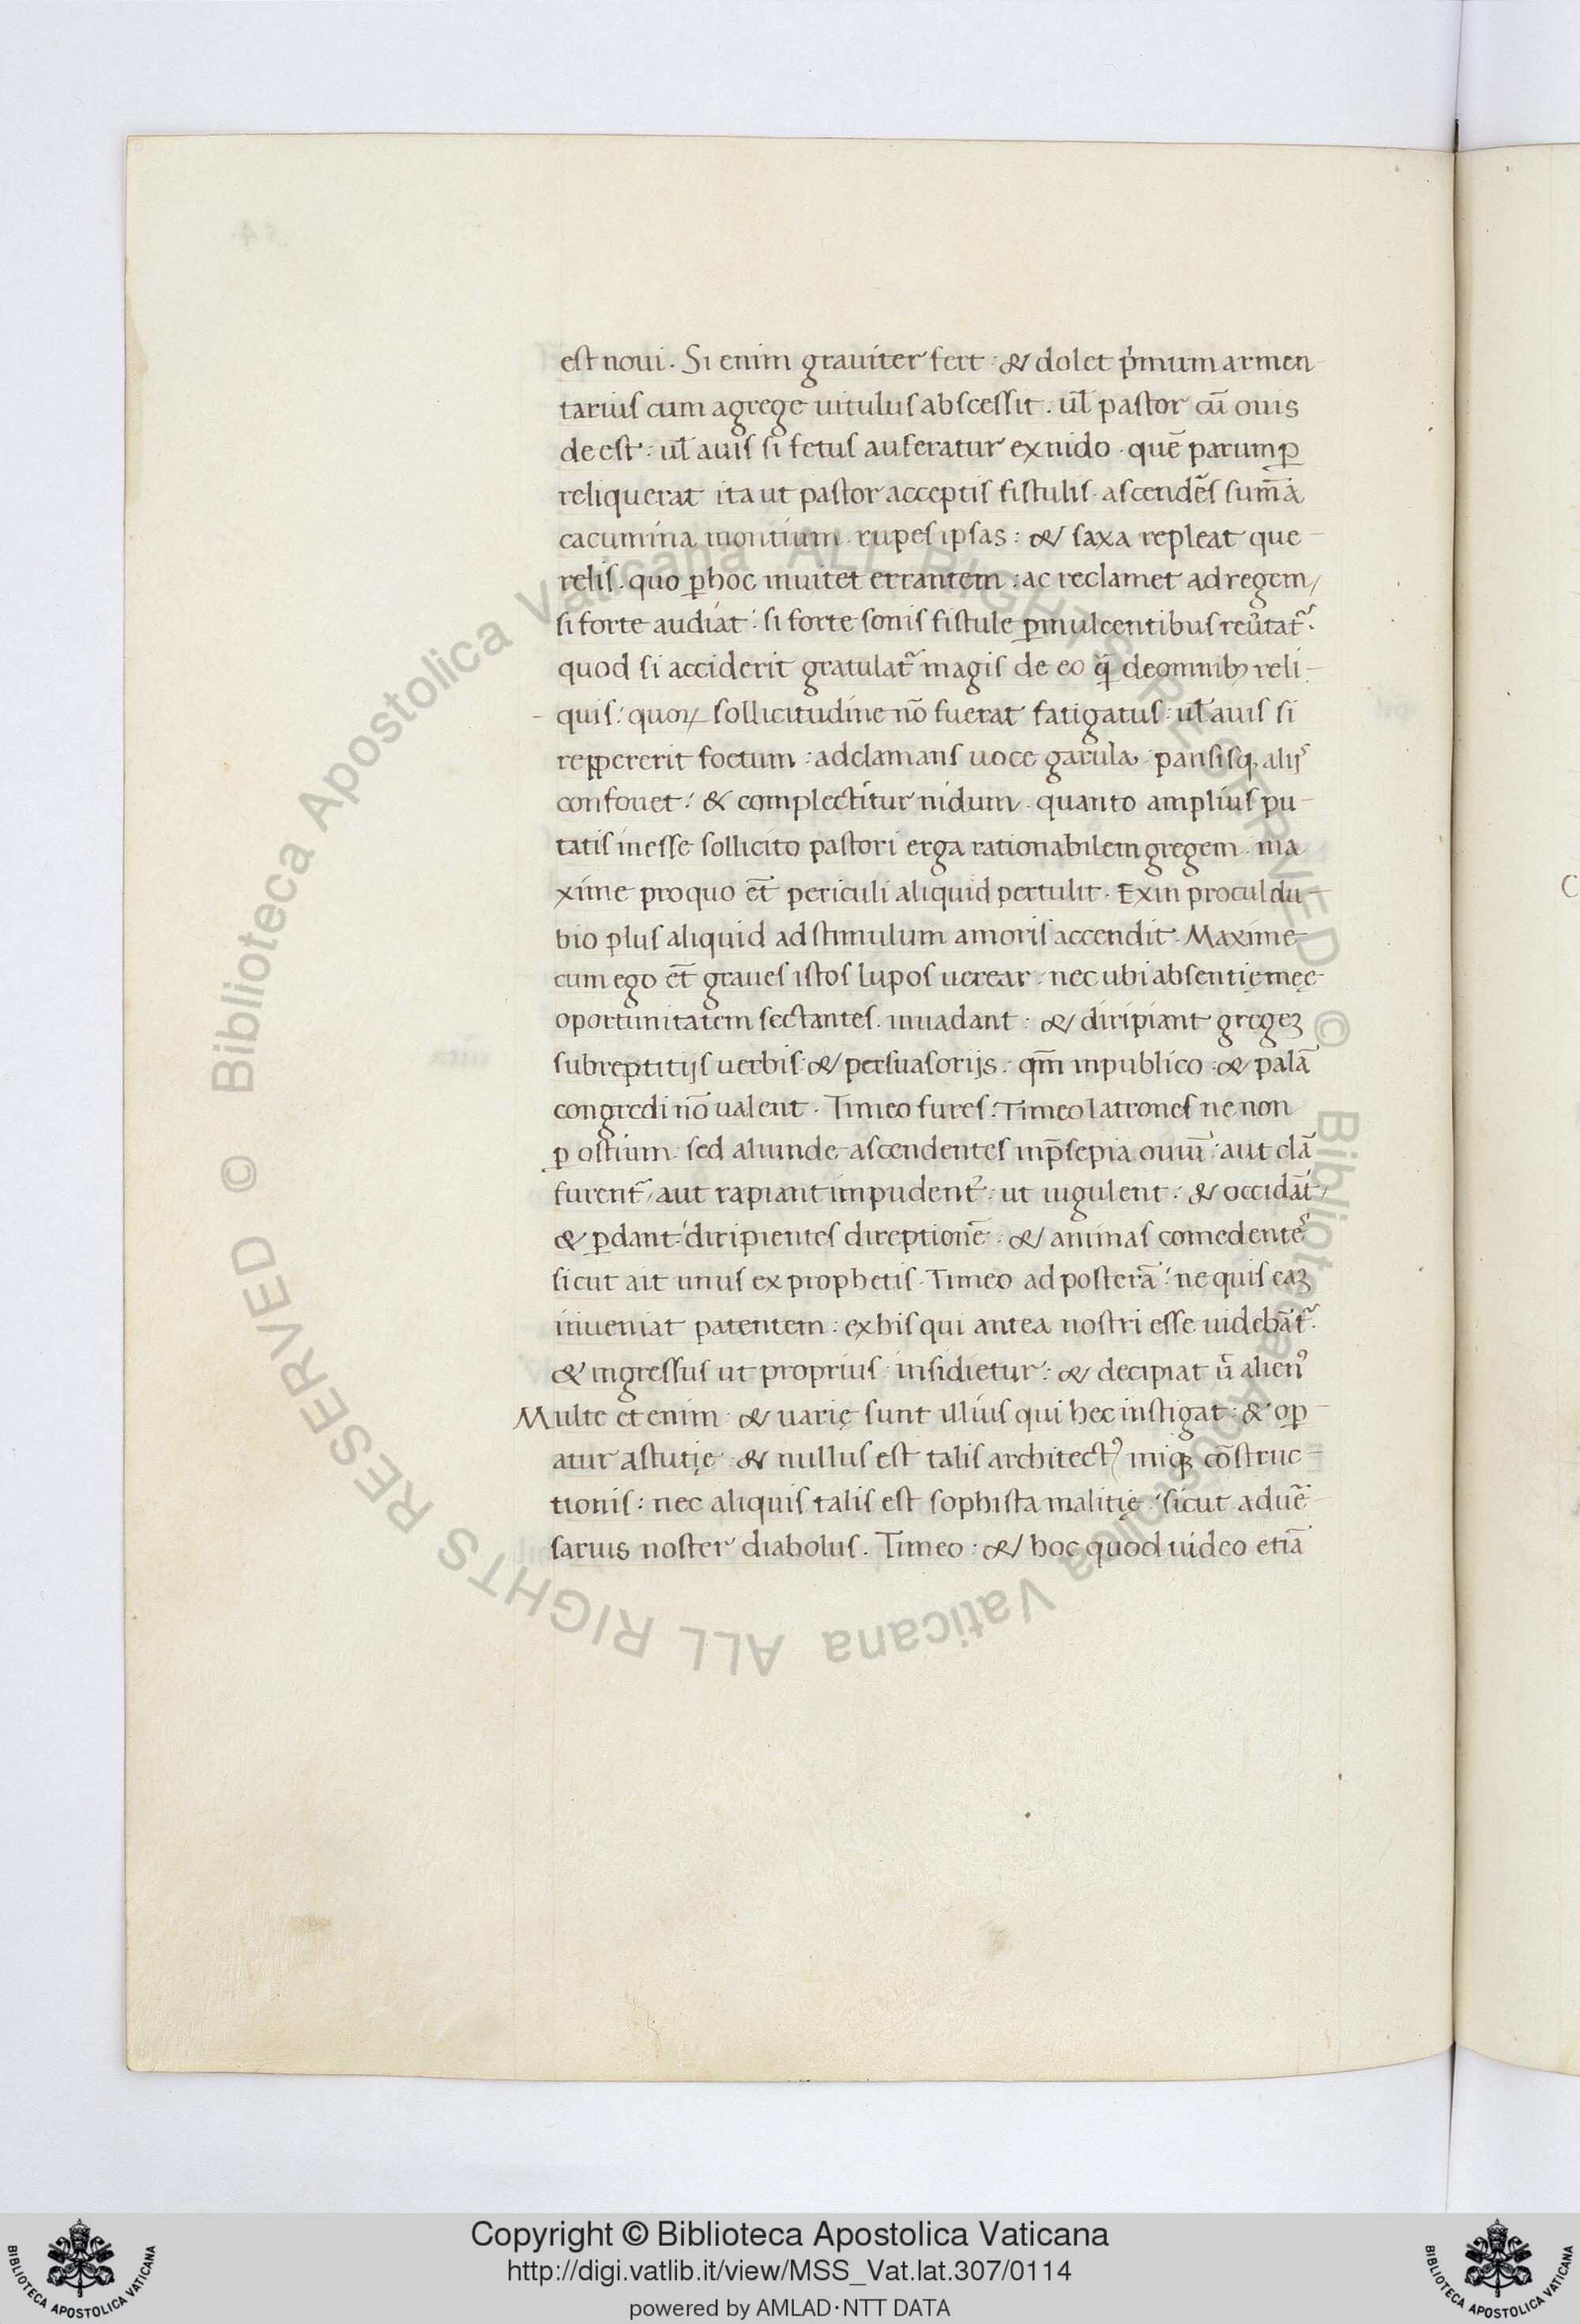 est noui. Si enim grauiter fert: & dolet p̍mum armen-
tarius cum agrege uitulus abscessit. ul̄ pastor cū ouis
de est: ul̄ auis si fetus auferatur exnido. quē parump̱
reliquerat ita ut pastor acceptis fistulis. ascendēs sum̄a
cacumina montium. rupes ipsas: & saxa repleat que-
relis. quo p̱hoc inuitet errantem: ac reclamet adregem/
si forte audiat: si forte sonis fistule p̱mulcentibus reu̓tat᷑.
quod si acciderit gratulat᷑ magis de eo q̄ deomnibꝫ reli-
quis: quoꝝ sollicitudine nō fuerat fatigatus: ul̄ auis si
reppererit foetum: adclamans uoce garula. pansisqꝫ alijs
confouet: & complectitur nidum. quanto amplius pu-
tatis inesse sollicito pastori erga rationabilem gregem. ma
xime proquo et̄ periculi aliquid pertulit. Exin proculdu-
bio plus aliquid adstimulum amoris accendit. Maxime
cum ego et̄ graues istos lupos uerear. nec ubi absentię meę
oportunitatem sectantes. inuadant: & diripiant gregeꝫ
subreptitijs uerbis: & persuasorijs. qm̄ inpublico: & palā
congredi nō ualent. Timeo fures: Timeo latrones ne non
p̱ ostium. sed aliunde ascendentes inp̄sepia ouiū: aut clā
furent᷑/ aut rapiant impudent̓: ut iugulent: & occidāt/
& p̱dant: diripientes direptionē. & animas comedentes
sicut ait unus ex prophetis. Timeo ad posterā: ne quis eaꝫ
inueniat patentem: exhis qui antea nostri esse uidebāt᷑.
& ingressus ut proprius insidietur: & decipiat ū alienꝰ
Multe et enim: & varię sunt illius qui hec instigat: & op̱-
atur astutię: & nullus est talis architectꝰ iniqꝫ cōstruc-
tionis: nec aliquis talis est sophista malitię: sicut aduē-
sarius noster diabolus. Timeo: & hoc quod uideo etiā
© Biblioteca Apostolica Vaticana ALL RIGHTS RESERVED
© Biblioteca Apostolica Vaticana ALL RIGHTS RESERVED
BIBLIOTECA APOSTOLICA VATICANA
Copyright © Biblioteca Apostolica Vaticana
http://digi.vatlib.it/view/MSS_Vat.lat.307/0114
powered by AMLAD·NTT DATA
BIBLIOTECA APOSTOLICA VATICANA